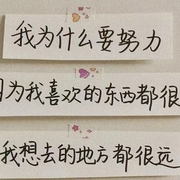 我为什么要努力
因为我喜欢的东西都很
我想去的地方都很远